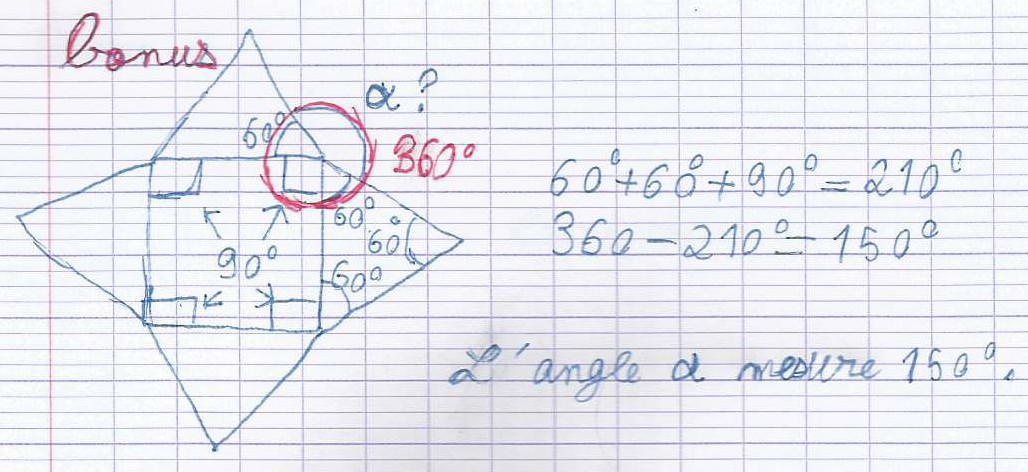 bonus
α ?
60°
360°
60°
60°
90°
60°
60°+60°+90°=210°
360-210°=150°
L'angle α mesure 150°.